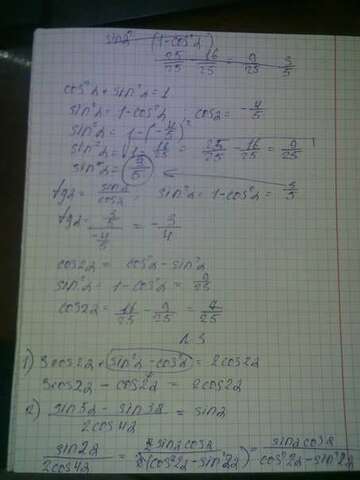 sin²α (1-cos²α)
25/25 - 16/25 = 9/25 3/5
cos²α + sin²α = 1
sin²α = 1 - cos²α ; cosα = -4/5
sin²α = 1 - (-4/5)²
sin²α = √1 - 16/25 = 25/25 - 16/25 = 9/25
sin²α = (3/5)
tgα = sinα/cosα ; sin²α = 1 - cos²α = -3/5
tgα = 3/5 / -4/5 = -3/4
cos2α = cos²α - sin²α
sin²α = 1 - cos²α = 9/25
cos2α = 16/25 - 9/25 = 7/25
N 3
1) 3cos2α + sin²α - cos²α = 2cos2α
3cos2α - cos2α = 2cos2α
2) sin5α - sin3α / 2cos4α = sinα
sin2α / 2cos4α = 2sinαcosα / 2(cos²2α - sin²2α) = sinαcosα / cos²2α - sin²2α